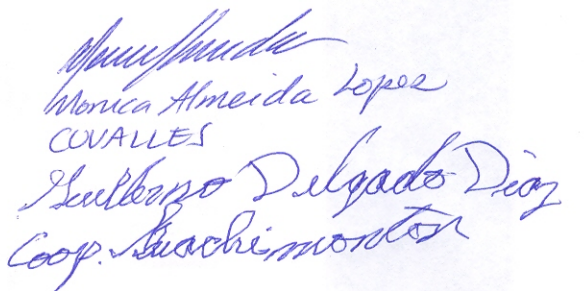 Monica Almeida Lopez
COVALLES
Guillermo Delgado Diaz
Coop. Guachimontón